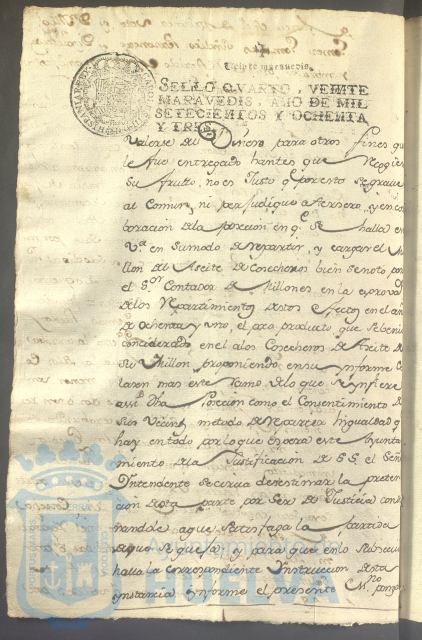 Veinte maravedis.
SELLO QVARTO, VEINTE
MARAVEDIS, AÑO DE MIL
SETECIENTOS Y OCHENTA
Y TRES
Valerse de su Dinero para otros fines que
le fue entregado hantes que Recogiese
su frutto, no es Justo q.e por esto se grave
al Comun, ni perjudique a terzero, y en co
boracion de la porcion en q.e se halla
V.a en su modo de repartir, y cargar el Mi
llon del Aseite de Cosecheros bien se noto, por
el S.or Contador de Millones en la aprova
de los Repartimientos de estos efectos en el añ
de ochenta y uno, el poco producto que se
considerado en el a los Cosecheros de Aceite de
su Millon, proponiendo en su Informe
laron mas este Ramo. De lo que se infiere
assi dha porcion como el Consentimiento de
sus Vecin.s metodo de repartir higualdad q
hay en todo por lo que espera este Ayunta
miento de la Justificacion de S.S. el Señ
Intendente se sirva desestimar la preten
cion de esta parte por ser de Justicia con
nandole a que satisfaga la partida
de que se quexa, y para que en lo subcesivo
halla la correspondiente Instruccion de esta
instancia informe el presente
Ayuntamiento de
HUELVA